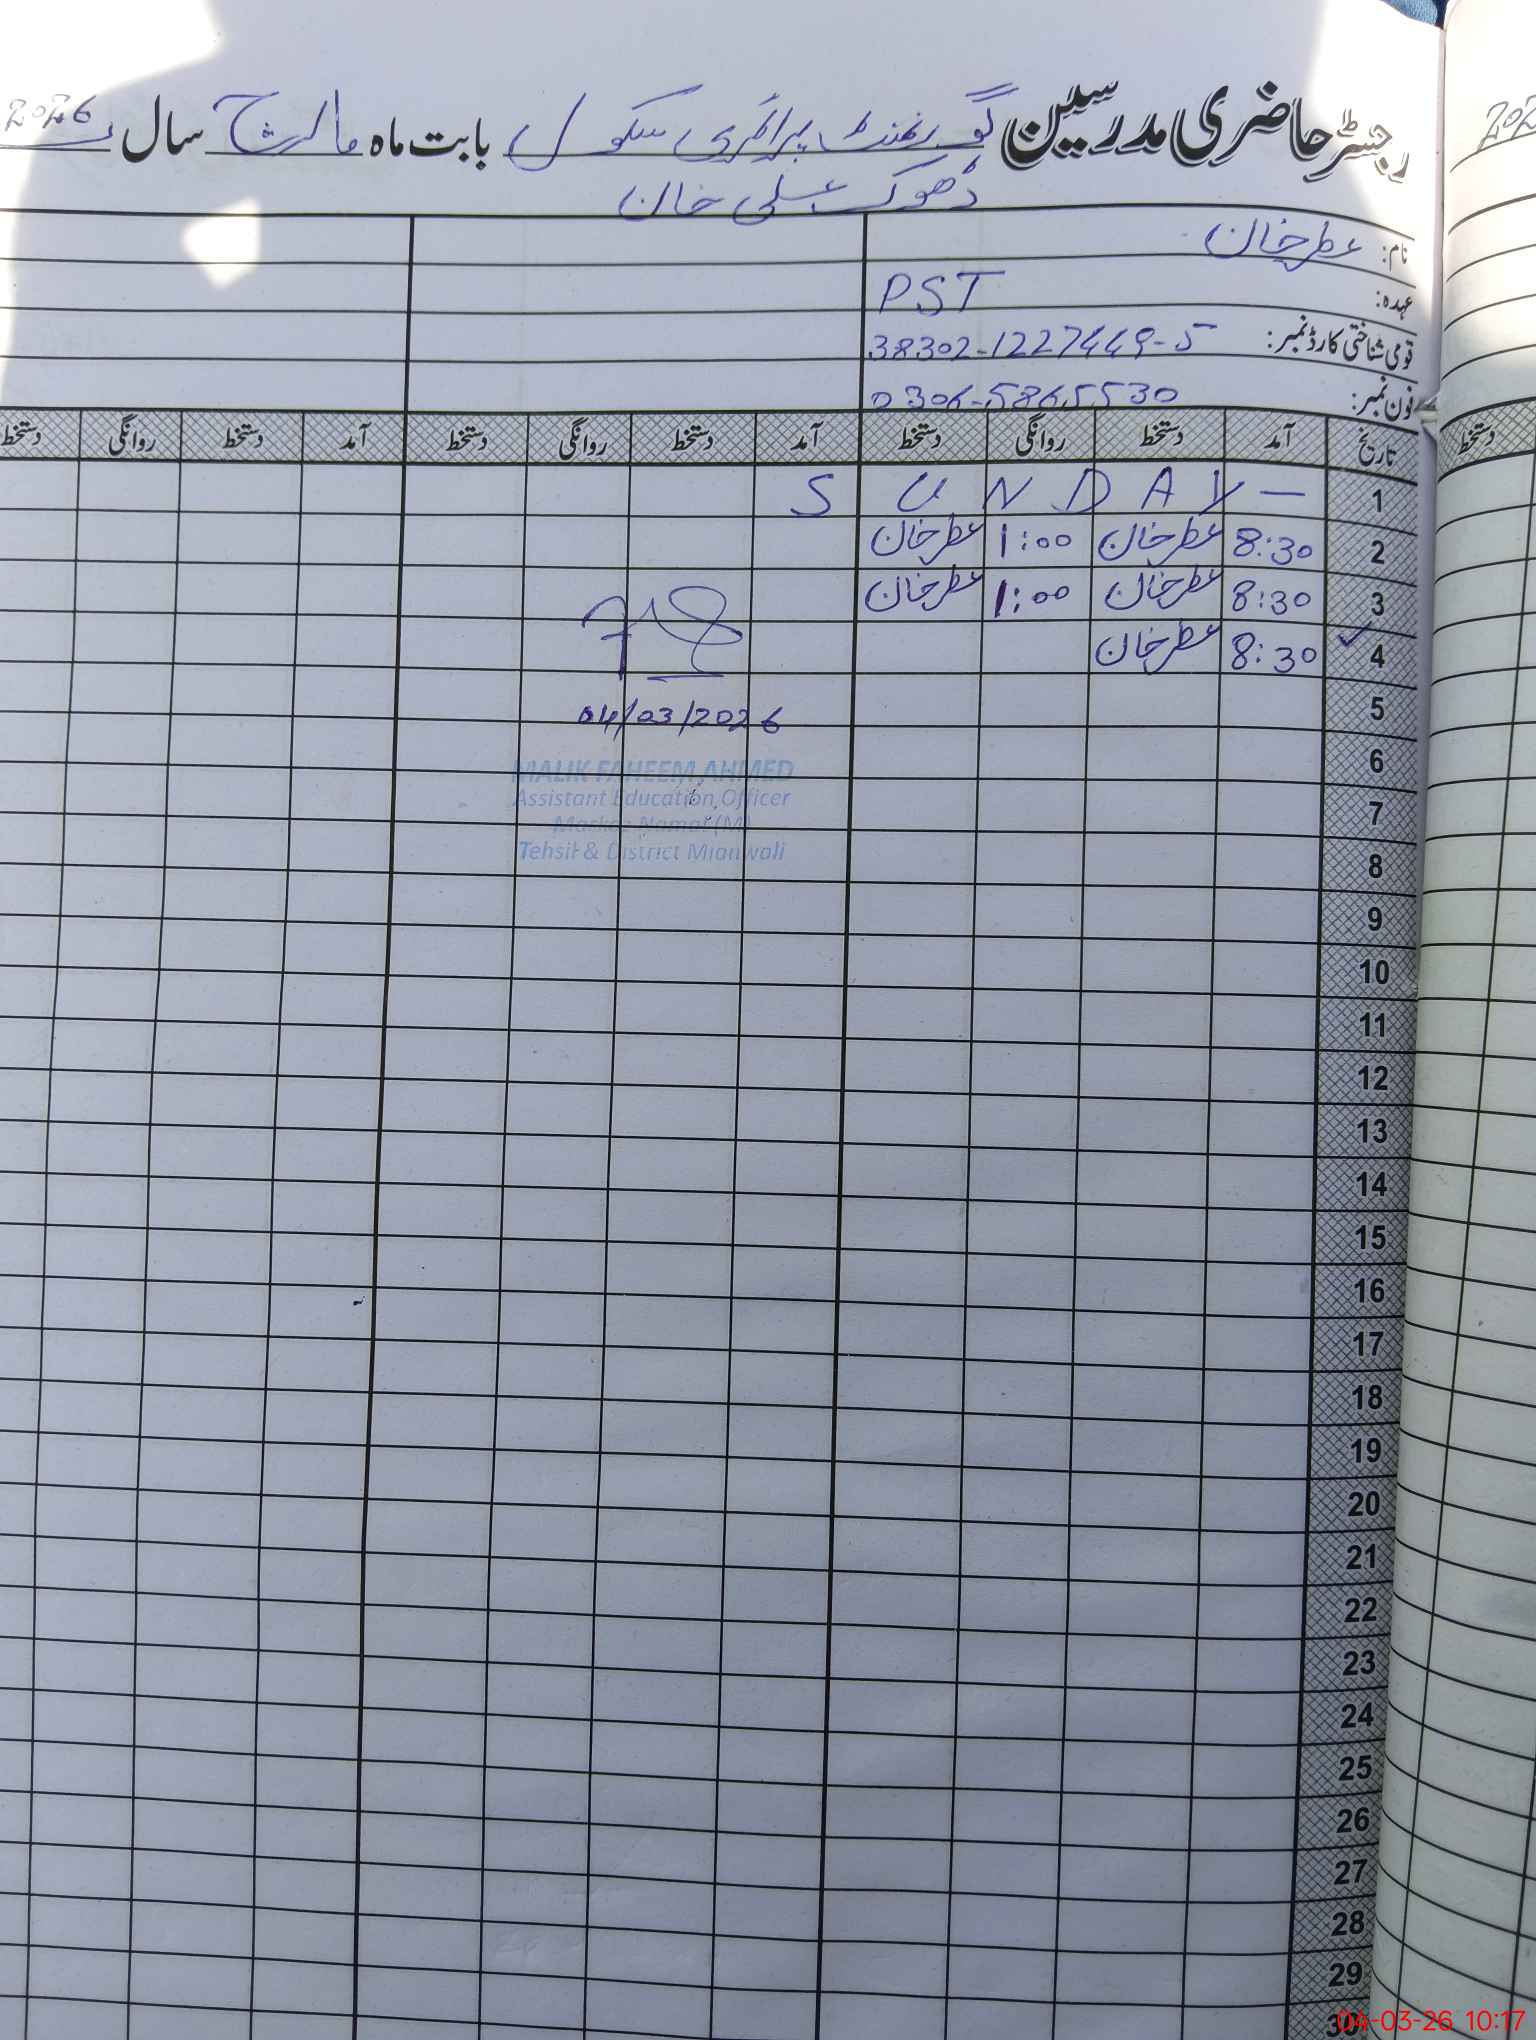 رجسٹر حاضری مدرسین گورنمنٹ پرائمری سکول بابت ماہ مارچ سال 2026
ڈھوک علی خان
نام: عطر خان
عہدہ: PST
قومی شناختی کارڈ نمبر: 38302-1227449-5
فون نمبر: 0306-5865530
تاریخ آمد دستخط روانگی دستخط آمد دستخط روانگی دستخط آمد دستخط روانگی دستخط
1 S U N D A Y —
2 8:30 عطر خان 1:00 عطر خان
3 8:30 عطر خان 1:00 عطر خان
4 ✓ 8:30 عطر خان
04/03/2026
MALIK FAHEEM AHMED
Assistant Education Officer
Markaz Namal (M)
Tehsil & District Mianwali
5
6
7
8
9
10
11
12
13
14
15
16
17
18
19
20
21
22
23
24
25
26
27
28
29
04-03-26 10:17